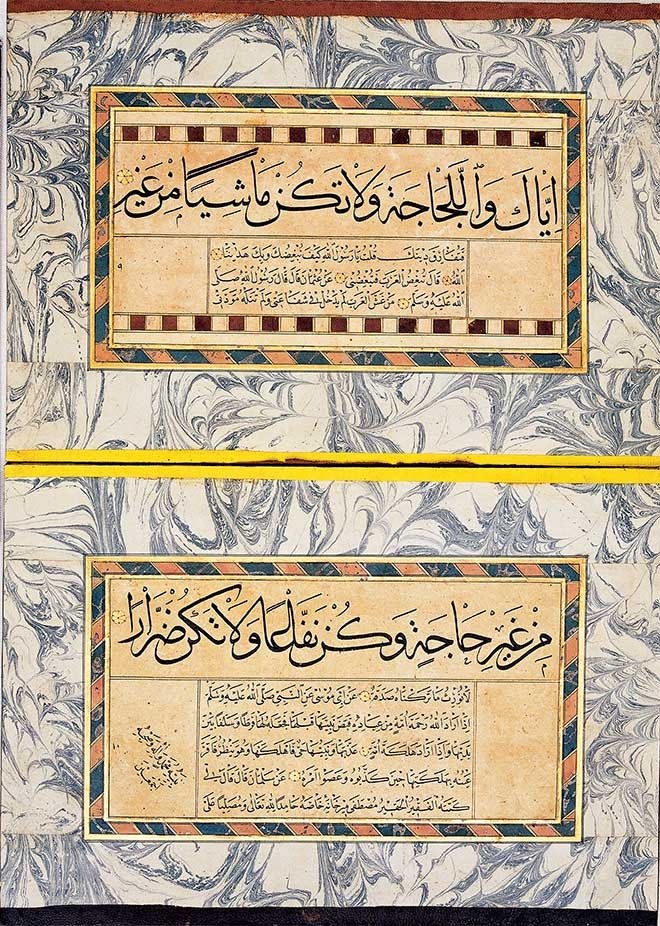 اِيَّاكَ وَاللَّجَاجَةَ وَلَا تَكُنْ مَاشِيًا مِنْ غَيْرِ
فتفارق دينك قلت يا رسول الله كيف نبغضك وبك هدانا
الله قال تبغض العرب فتبغضني عن عثمان قال قال رسول الله صلى
الله عليه وسلم من غش العرب لم يدخل في شفاعتي ولم تنله مودتي
مِنْ غَيْرِ حَاجَةٍ وَكُنْ نَفَّاعًا وَلَا تَكُنْ ضَرَّارًا
لا نورث ما تركناه صدقة عن ابى موسى عن النبي صلى الله عليه وسلم
اذا اراد الله رحمة امة من عباده قبض نبيها قبلها فجعله لها فرطا وسلفا بين
يديها واذا اراد هلكة امة عذبها ونبيها حي فاهلكها وهو ينظر فاقر
عينه بهلكتها حين كذبوه وعصوا امره عن سلمان قال قال لي
كتبه الفقير الحقير مصطفى خاصة حامدا لله تعالى ومصليا على